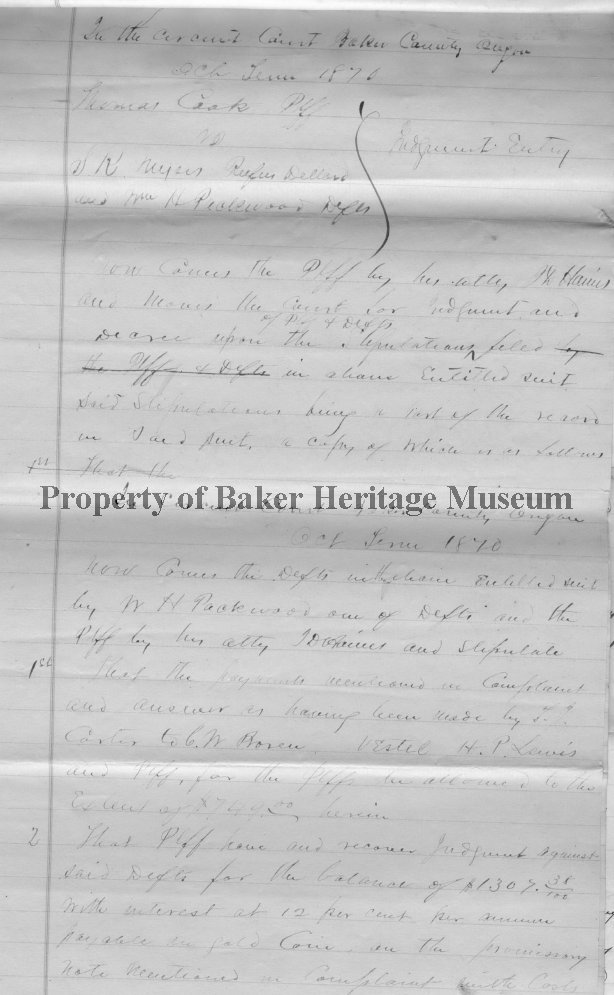 In the circuit Court Baker County Oregon
Oct Term 1870
Thomas Cook Plff
vs
S K Myers Rufus Dellard
and Wm H Packwood Defts
Judgment Entry
Now Comes the Plff by his atty I D Haines
and Moves the court for Judgment and
of Plf & Defts
Decree upon the stipulations filed by
the Plff & Defts in above Entitled suit
said Stipulations being a part of the record
in said suit, a copy of which is as follows
1st That the
Property of Baker Heritage Museum
County Oregon
Oct Term 1870
Now Comes the Defts in the above Entitled suit
by W H Packwood one of Defts and the
Plff by his atty I D Haines and Stipulate
1st That the payments mentioned in Complaint
and answer as having been made by
Carter to C. W Boren. Vestel H. P. Lewis
and Plff, for the Plffs be allowed to the
Extent of $744.00 herein
2 That Plff have and recover Judgment against
said Defts for the balance of $1307.38/100
with interest at 12 per cent per annum
payable in gold Coin, on the promissory
note mentioned in Complaint with Costs